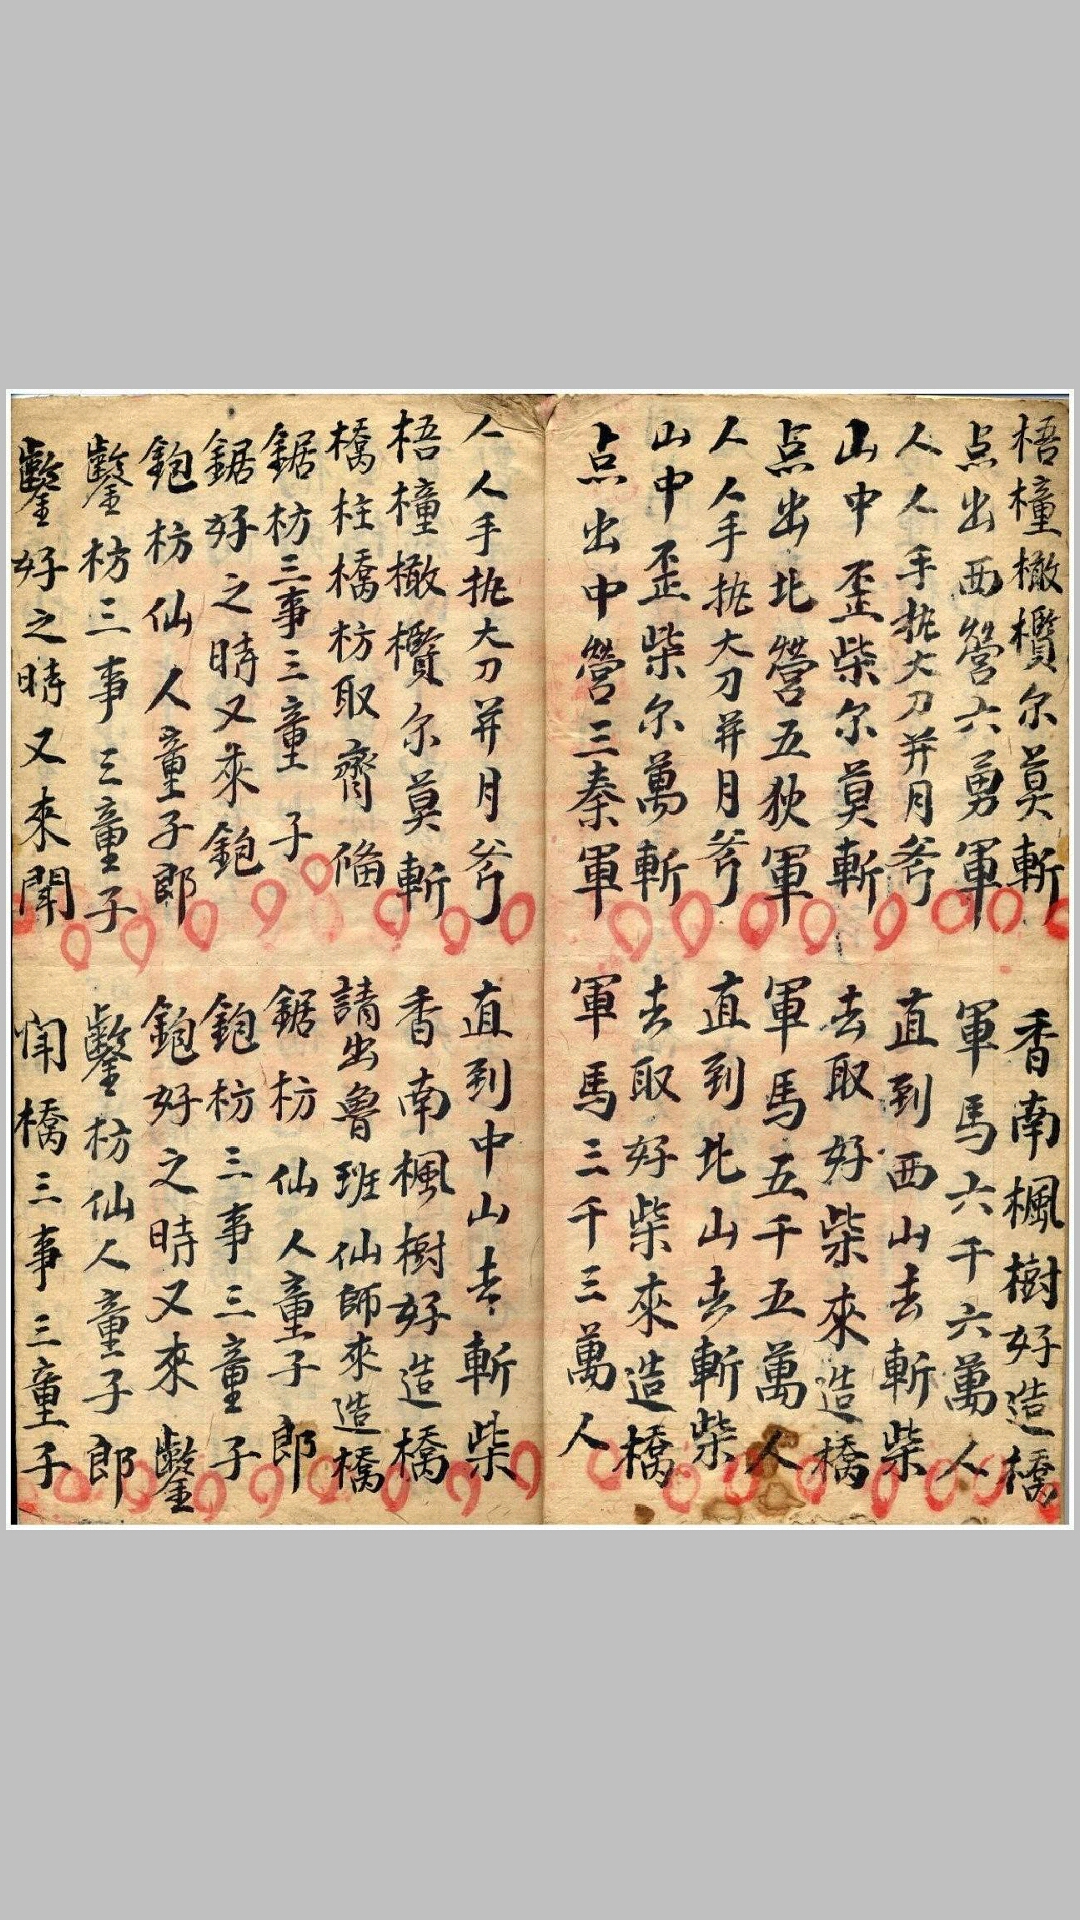 梧橦橄欖尔莫斬　香南楓樹好造橋
点出西營六勇軍　軍馬六千六萬人
人人手执大刀并月斧　直到西山去斬柴
山中歪柴尔莫斬　去取好柴來造橋
点出北營五狄軍　軍馬五千五萬人
人人手执大刀并月斧　直到北山去斬柴
山中歪柴尔萬斬　去取好柴來造橋
点出中營三秦軍　軍馬三千三萬人
人人手执大刀并月斧　直到中山去斬柴
梧橦橄欖尔莫斬　香南楓樹好造橋
橋柱橋枋取齊偹　請出魯班仙師來造橋
鋸枋三事三童子　鋸枋仙人童子郎
鋸好之時又來鉋　鉋枋三事三童子
鉋枋仙人童子郎　鉋好之時又來鑿
鑿枋三事三童子　鑿枋仙人童子郎
鑿好之時又來鬧　鬧橋三事三童子